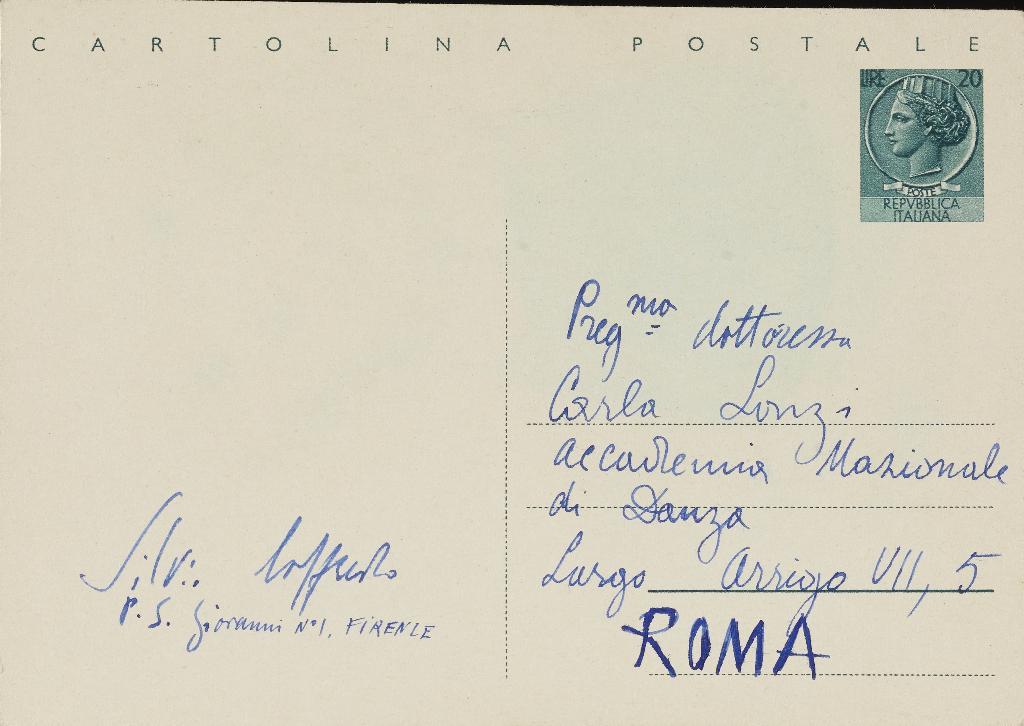 CARTOLINA POSTALE
LIRE 20
POSTE
REPVBBLICA
ITALIANA
Preg mo dottoressa
Carla Lonzi
Accademia Nazionale
di Danza
Largo Arrigo VII, 5
ROMA
Silvio Loffredo
P. S. Giovanni N° 1, FIRENZE